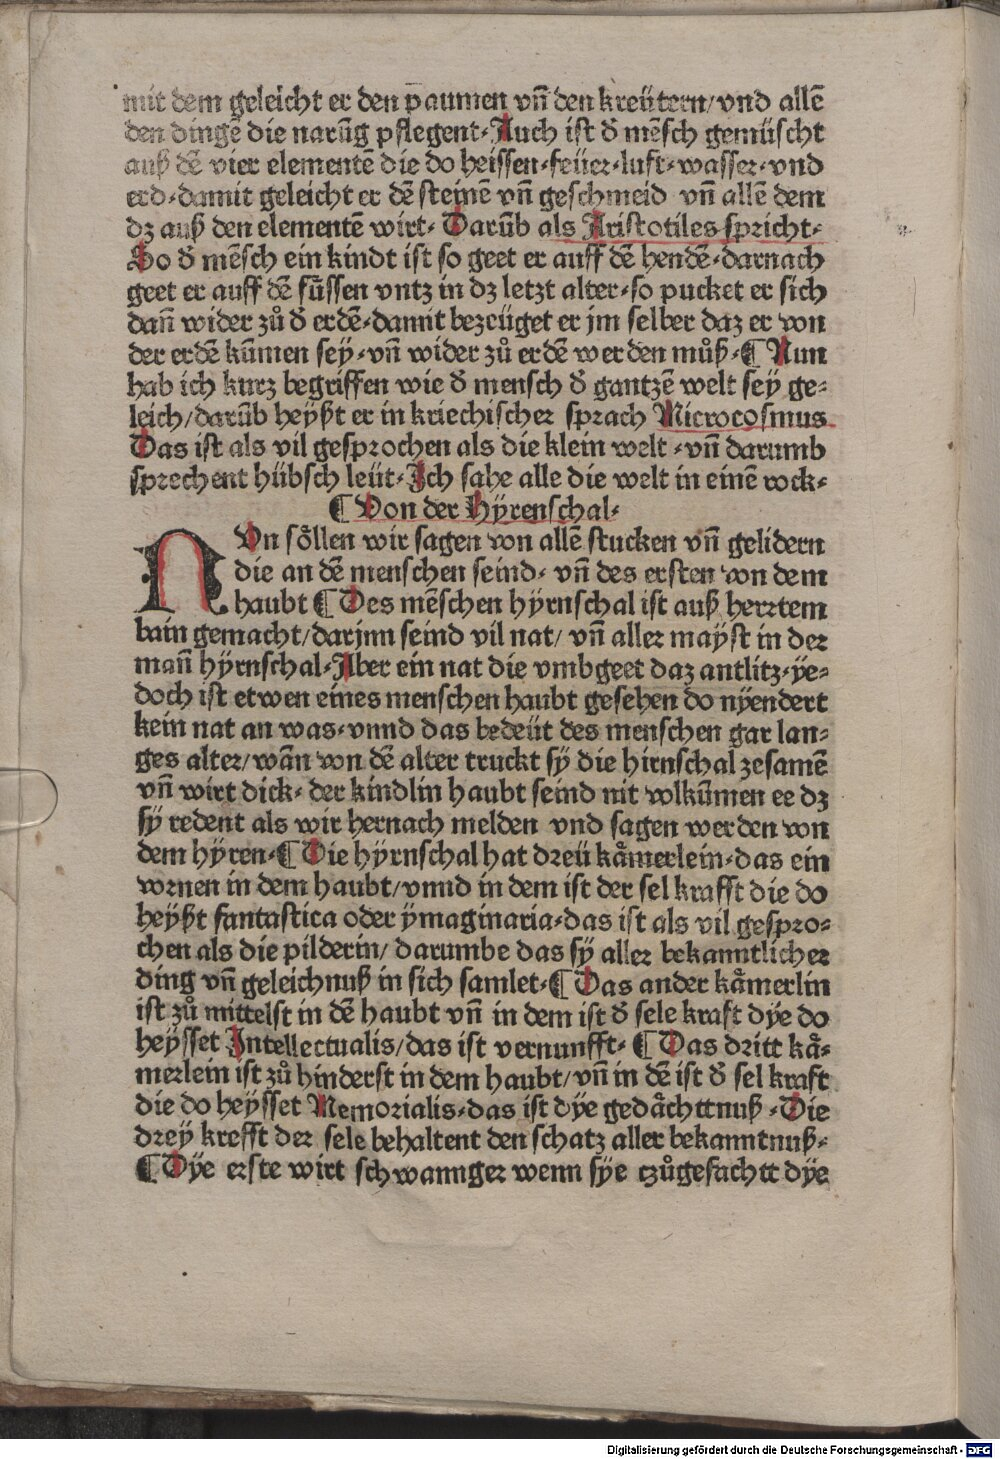 mit dem geleicht er den paumen vñ den kreütern/vnd allẽ
den dingẽ die narũg pflegent·Auch ist d̕ mẽsch gemüscht
auß dẽ vier elementẽ die do heissen·feüer·luft·wasser·vnd
erd·damit geleicht er dẽ steinẽ vñ geschmeid vñ allẽ dem
dz auß den elementẽ wirt· Darũb als Aristotiles spricht·
So d̕ mẽsch ein kindt ist so geet er auff dẽ hendẽ·darnach
geet er auff dẽ fu̎ssen vntz in dz letzt alter·so pucket er sich
dañ wider zů d̕ erdẽ·damit bezeüget er jm selber daz er von
der erdẽ kũmen sey·vñ wider zů erdẽ werden můß·¶Nun
hab ich kurz begriffen wie d̕ mensch d̕ gantzẽ welt sey ge⸗
leich/darũb heyßt er in kriechischer sprach Microcosmus
Das ist als vil gesprochen als die klein welt ·vñ darumb
sprechent hübsch leüt·Ich sahe alle die welt in einẽ rock·
¶Von der Hÿrenschal·
NVn söllen wir sagen von allẽ stucken vñ gelidern
die an dẽ menschen seind· vñ des ersten von dem
haubt ¶Des mẽschen hÿrnschal ist auß herrtem
bain gemacht/darjnn seind vil nat/ vñ aller maÿst in der
mañ hÿrnschal·Aber ein nat die vmbgeet daz antlitz·ÿe⸗
doch ist etwen eines menschen haubt gesehen do nÿendert
kein nat an was·vnnd das bedeüt des menschen gar lan⸗
ges alter/wãn von dẽ alter truckt sÿ die hirnschal zesamẽ
vñ wirt dick· der kindlin haubt seind nit volkũmen ee dz
sÿ redent als wir hernach melden vnd sagen werden von
dem hÿren·¶Die hÿrnschal hat dreü kämerlein·das ein
vornen in dem haubt/vnnd in dem ist der sel krafft die do
heÿßt fantastica oder ÿmaginaria·das ist als vil gespro⸗
chen als die pilderin/ darumbe das sÿ aller bekanntlicher
ding vñ geleichnuß in sich samlet·¶Das ander kämerlin
ist zů mittelst in dẽ haubt vñ in dem ist d̕ sele kraft dÿe do
heÿsset Intellectualis/das ist vernunfft· ¶Das dritt kä⸗
merlein ist zů hinderst in dem haubt/vñ in dẽ ist d̕ sel kraft
die do heÿsset Memorialis·das ist dÿe gedächttnuß ·Die
dreÿ krefft der sele behaltent den schatz aller bekanntnuß·
¶Dÿe erste wirt schwannger wenn sÿe czůgefachtt dÿe
Digitalisierung gefördert durch die Deutsche Forschungsgemeinschaft - DFG